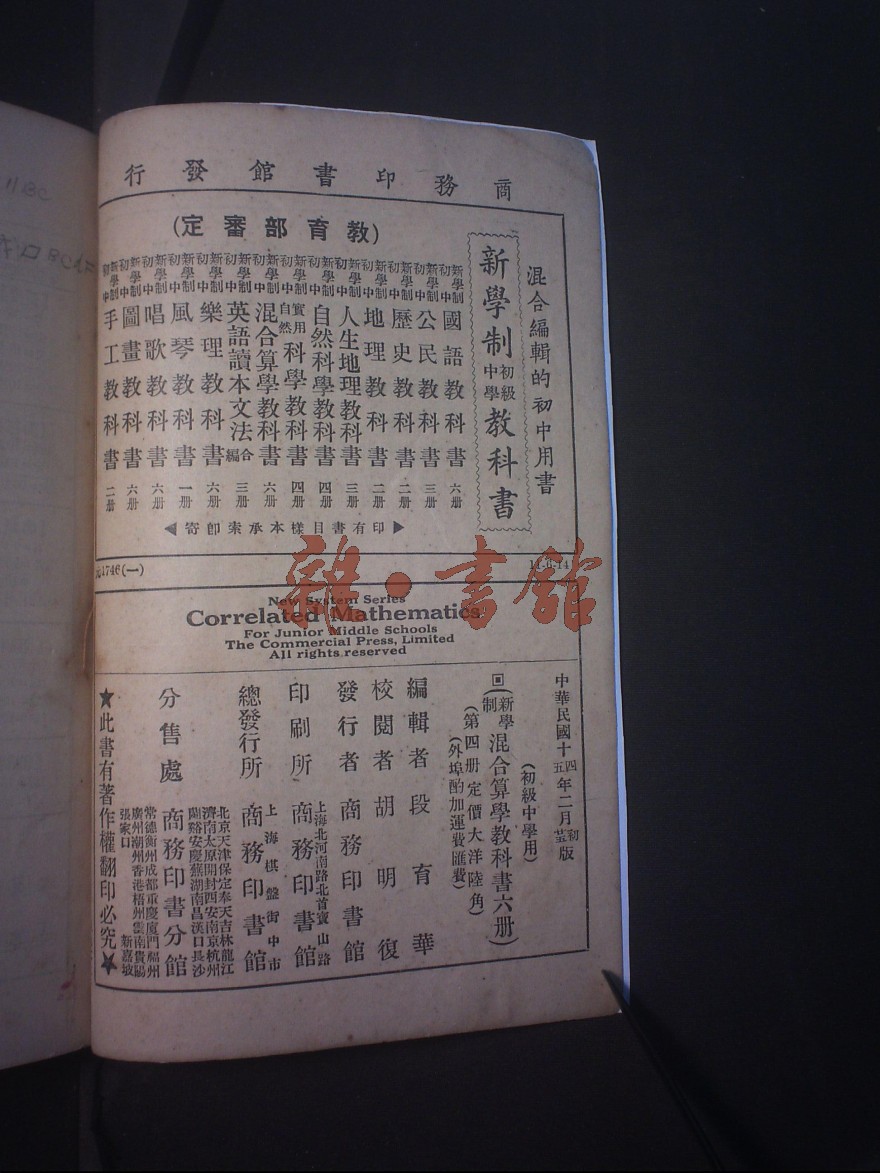 商務印書館發行
混合編輯的初中用書
新學制初級中學教科書
(教育部審定)
新學制初中國語教科書 六册
新學制初中公民教科書 三册
新學制初中歷史教科書 二册
新學制初中地理教科書 二册
新學制初中人生地理教科書 三册
初中自然科學教科書 四册
新學制初中實用自然科學教科書 四册
新學制初中混合算學教科書 六册
新學制初中英語讀本文法合編 三册
新學制初中樂理教科書 六册
新學制初中風琴教科書 一册
新學制初中唱歌教科書 六册
新學制初中圖畫教科書 六册
新學制初中手工教科書 二册
印有書目樣本承索卽寄
1746(一)
14-6-14
雜·書館
New System Series
Correlated Mathematics
For Junior Middle Schools
The Commercial Press, Limited
All rights reserved
中華民國十四五年二月初版
(初級中學用)
(新學制混合算學教科書六册)
(第四册定價大洋陸角)
(外埠酌加運費匯費)
編輯者 段育華
校閱者 胡明復
發行者 商務印書館
印刷所 上海北河南路北首寶山路 商務印書館
總發行所 上海棋盤街中市 商務印書館
分售處 商務印書分館
北京天津保定奉天吉林龍江
濟南太原開封西安南京杭州
蘭谿安慶蕪湖南昌漢口長沙
常德衡州成都重慶廈門福州
廣州潮州香港梧州雲南貴陽
張家口 新嘉坡
★此書有著作權翻印必究★